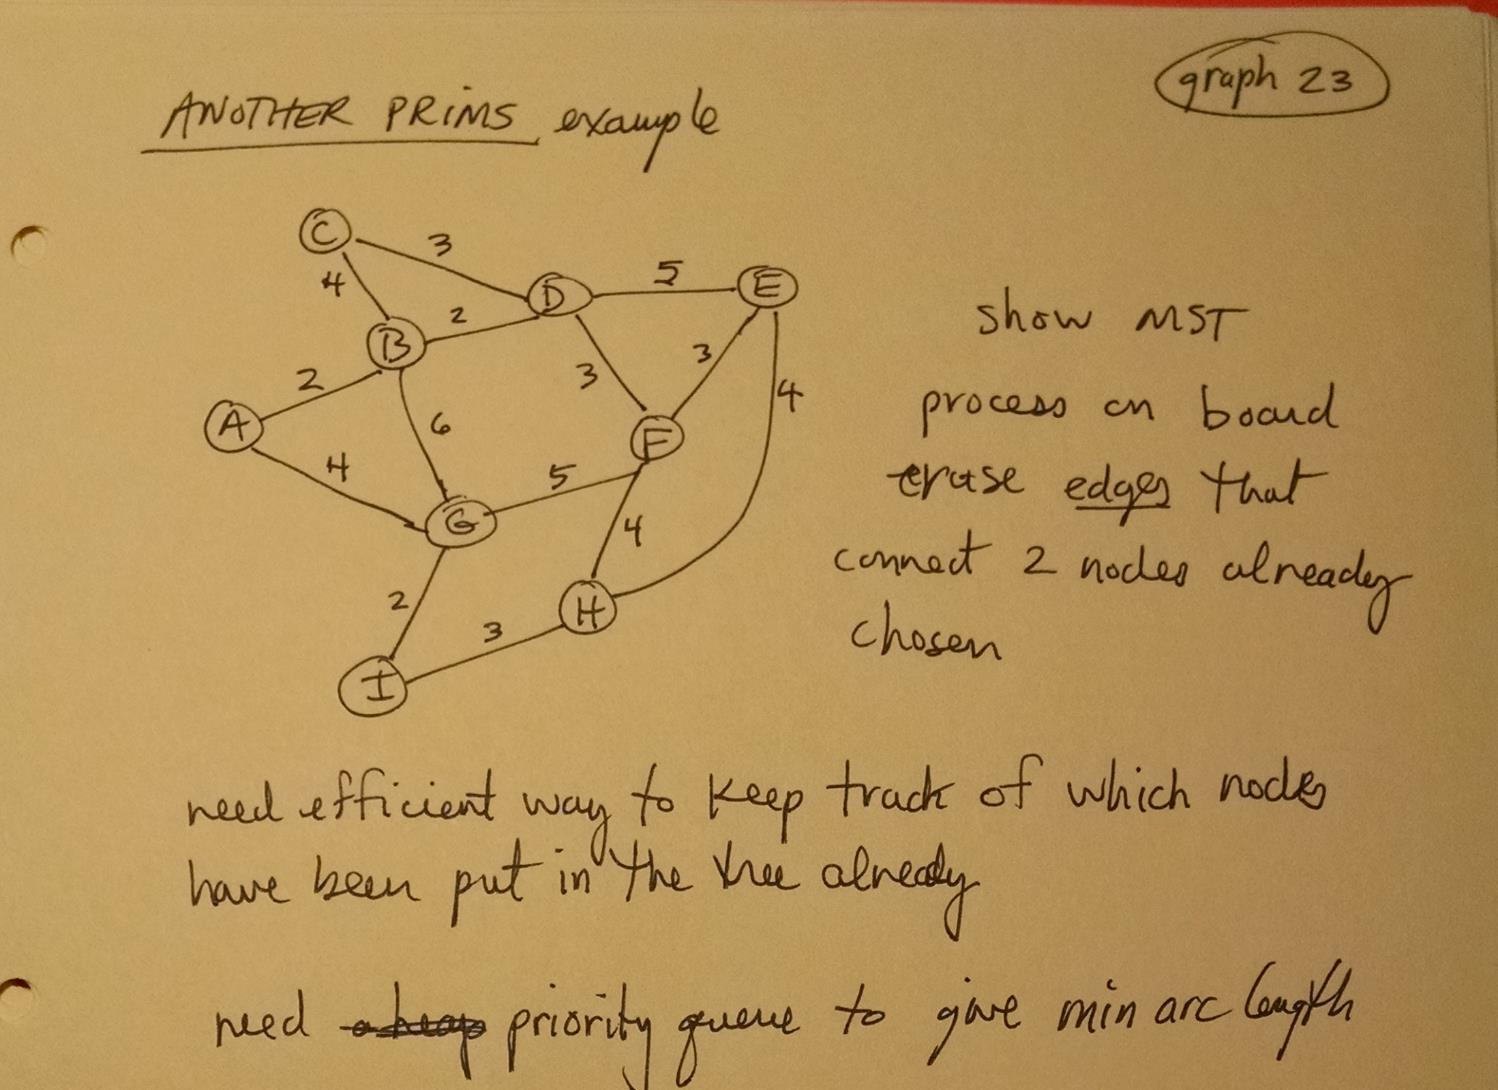 graph 23
ANOTHER PRIMS example
C
3
4
D
5
E
2
B
3
3
2
4
A
6
F
4
5
G
4
2
H
3
I
show MST
process on board
erase edges that
connect 2 nodes already
chosen
need efficient way to keep track of which nodes
have been put in the tree already
need a heap priority queue to give min arc length